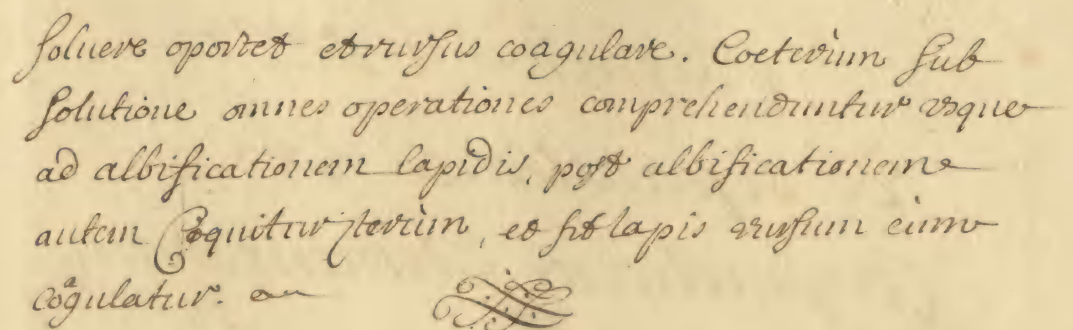 soluere oportet et rursus coagulare. Coeterùm sub
solutione omnes operationes comprehenduntur vsque
ad albificationem lapidis, post albificationem
autem Coquitur jterùm, et fit lapis rursum cùm
coagulatur.